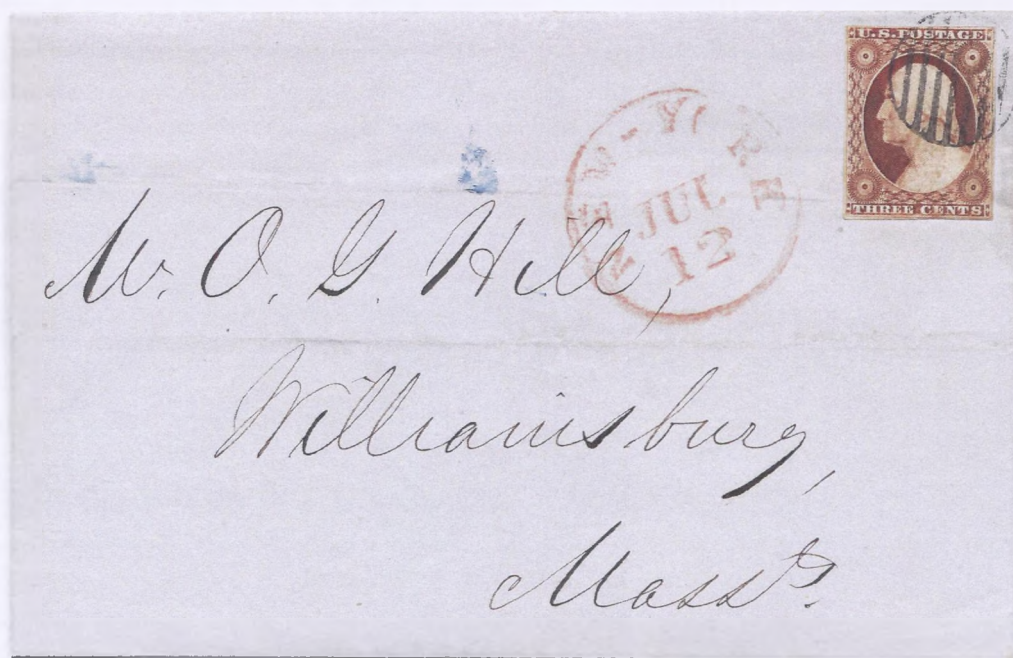 U.S. POSTAGE
THREE CENTS
NEW-YORK
JUL
12
Mr. O. G. Hill,
Williamsburg,
Mass.